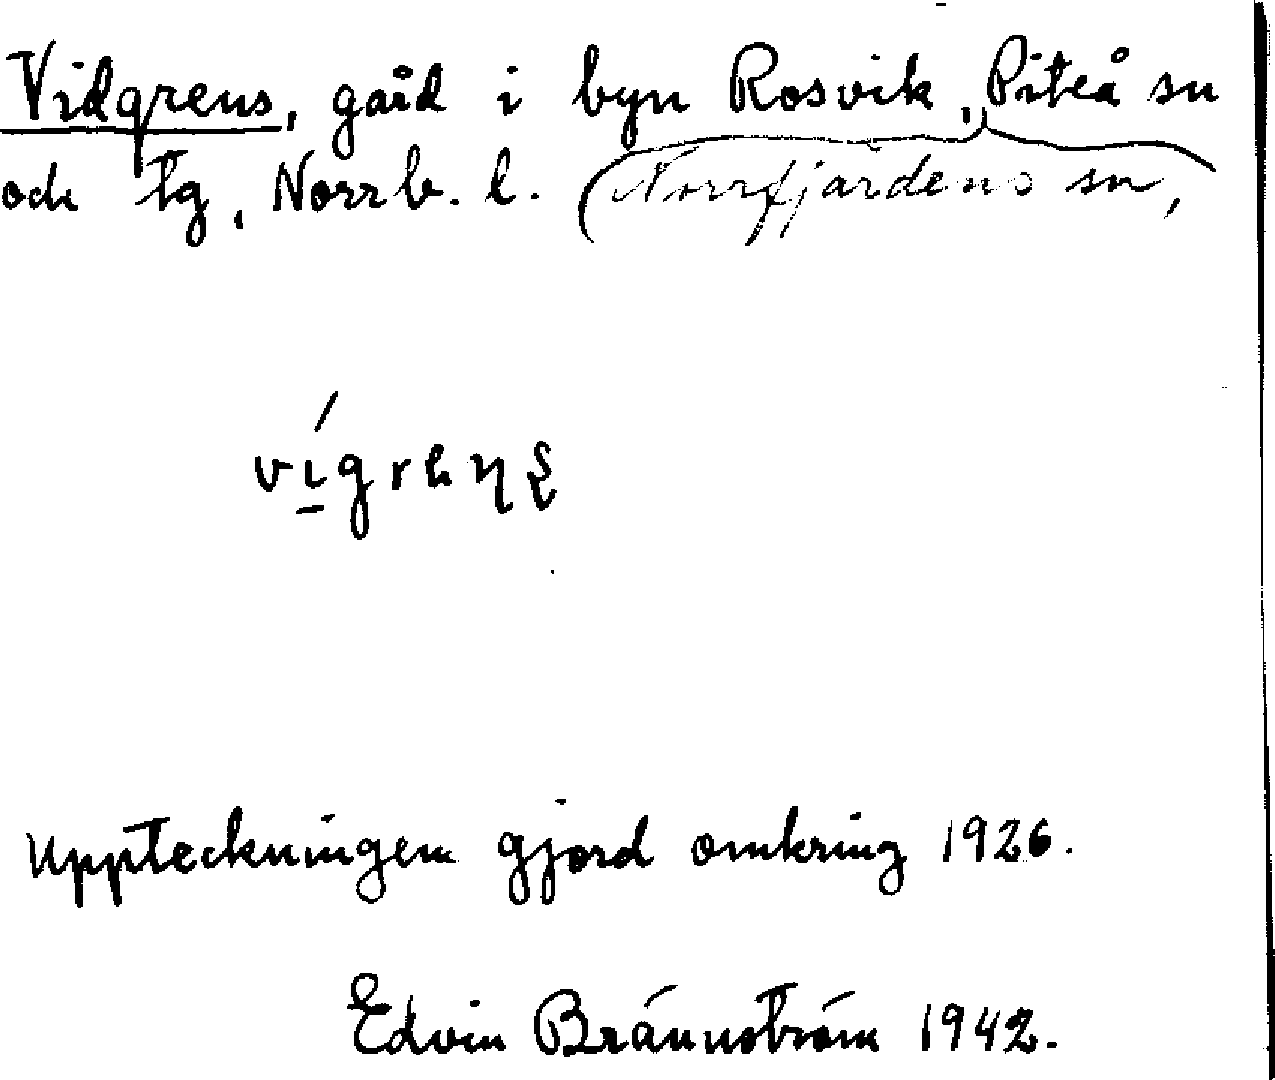 Vidgrens, gård i byn Rosvik, Piteå sn
och tg, Norrb. l. (Norrfjärdens sn,
Uppteckningen gjord omkring 1926.
Edvin Brännström 1942.